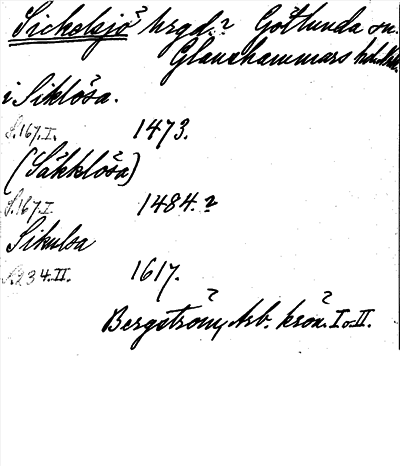 Sickelsjö hrgd. Götlunda sn.
Glanshammars hd.
i Siklösa.
S.167.I. 1473.
(Säkklösa)
S.167.I. 1484.
Sikulsa
S.234.II. 1617.
Bergström, Arb. krön. I o. II.